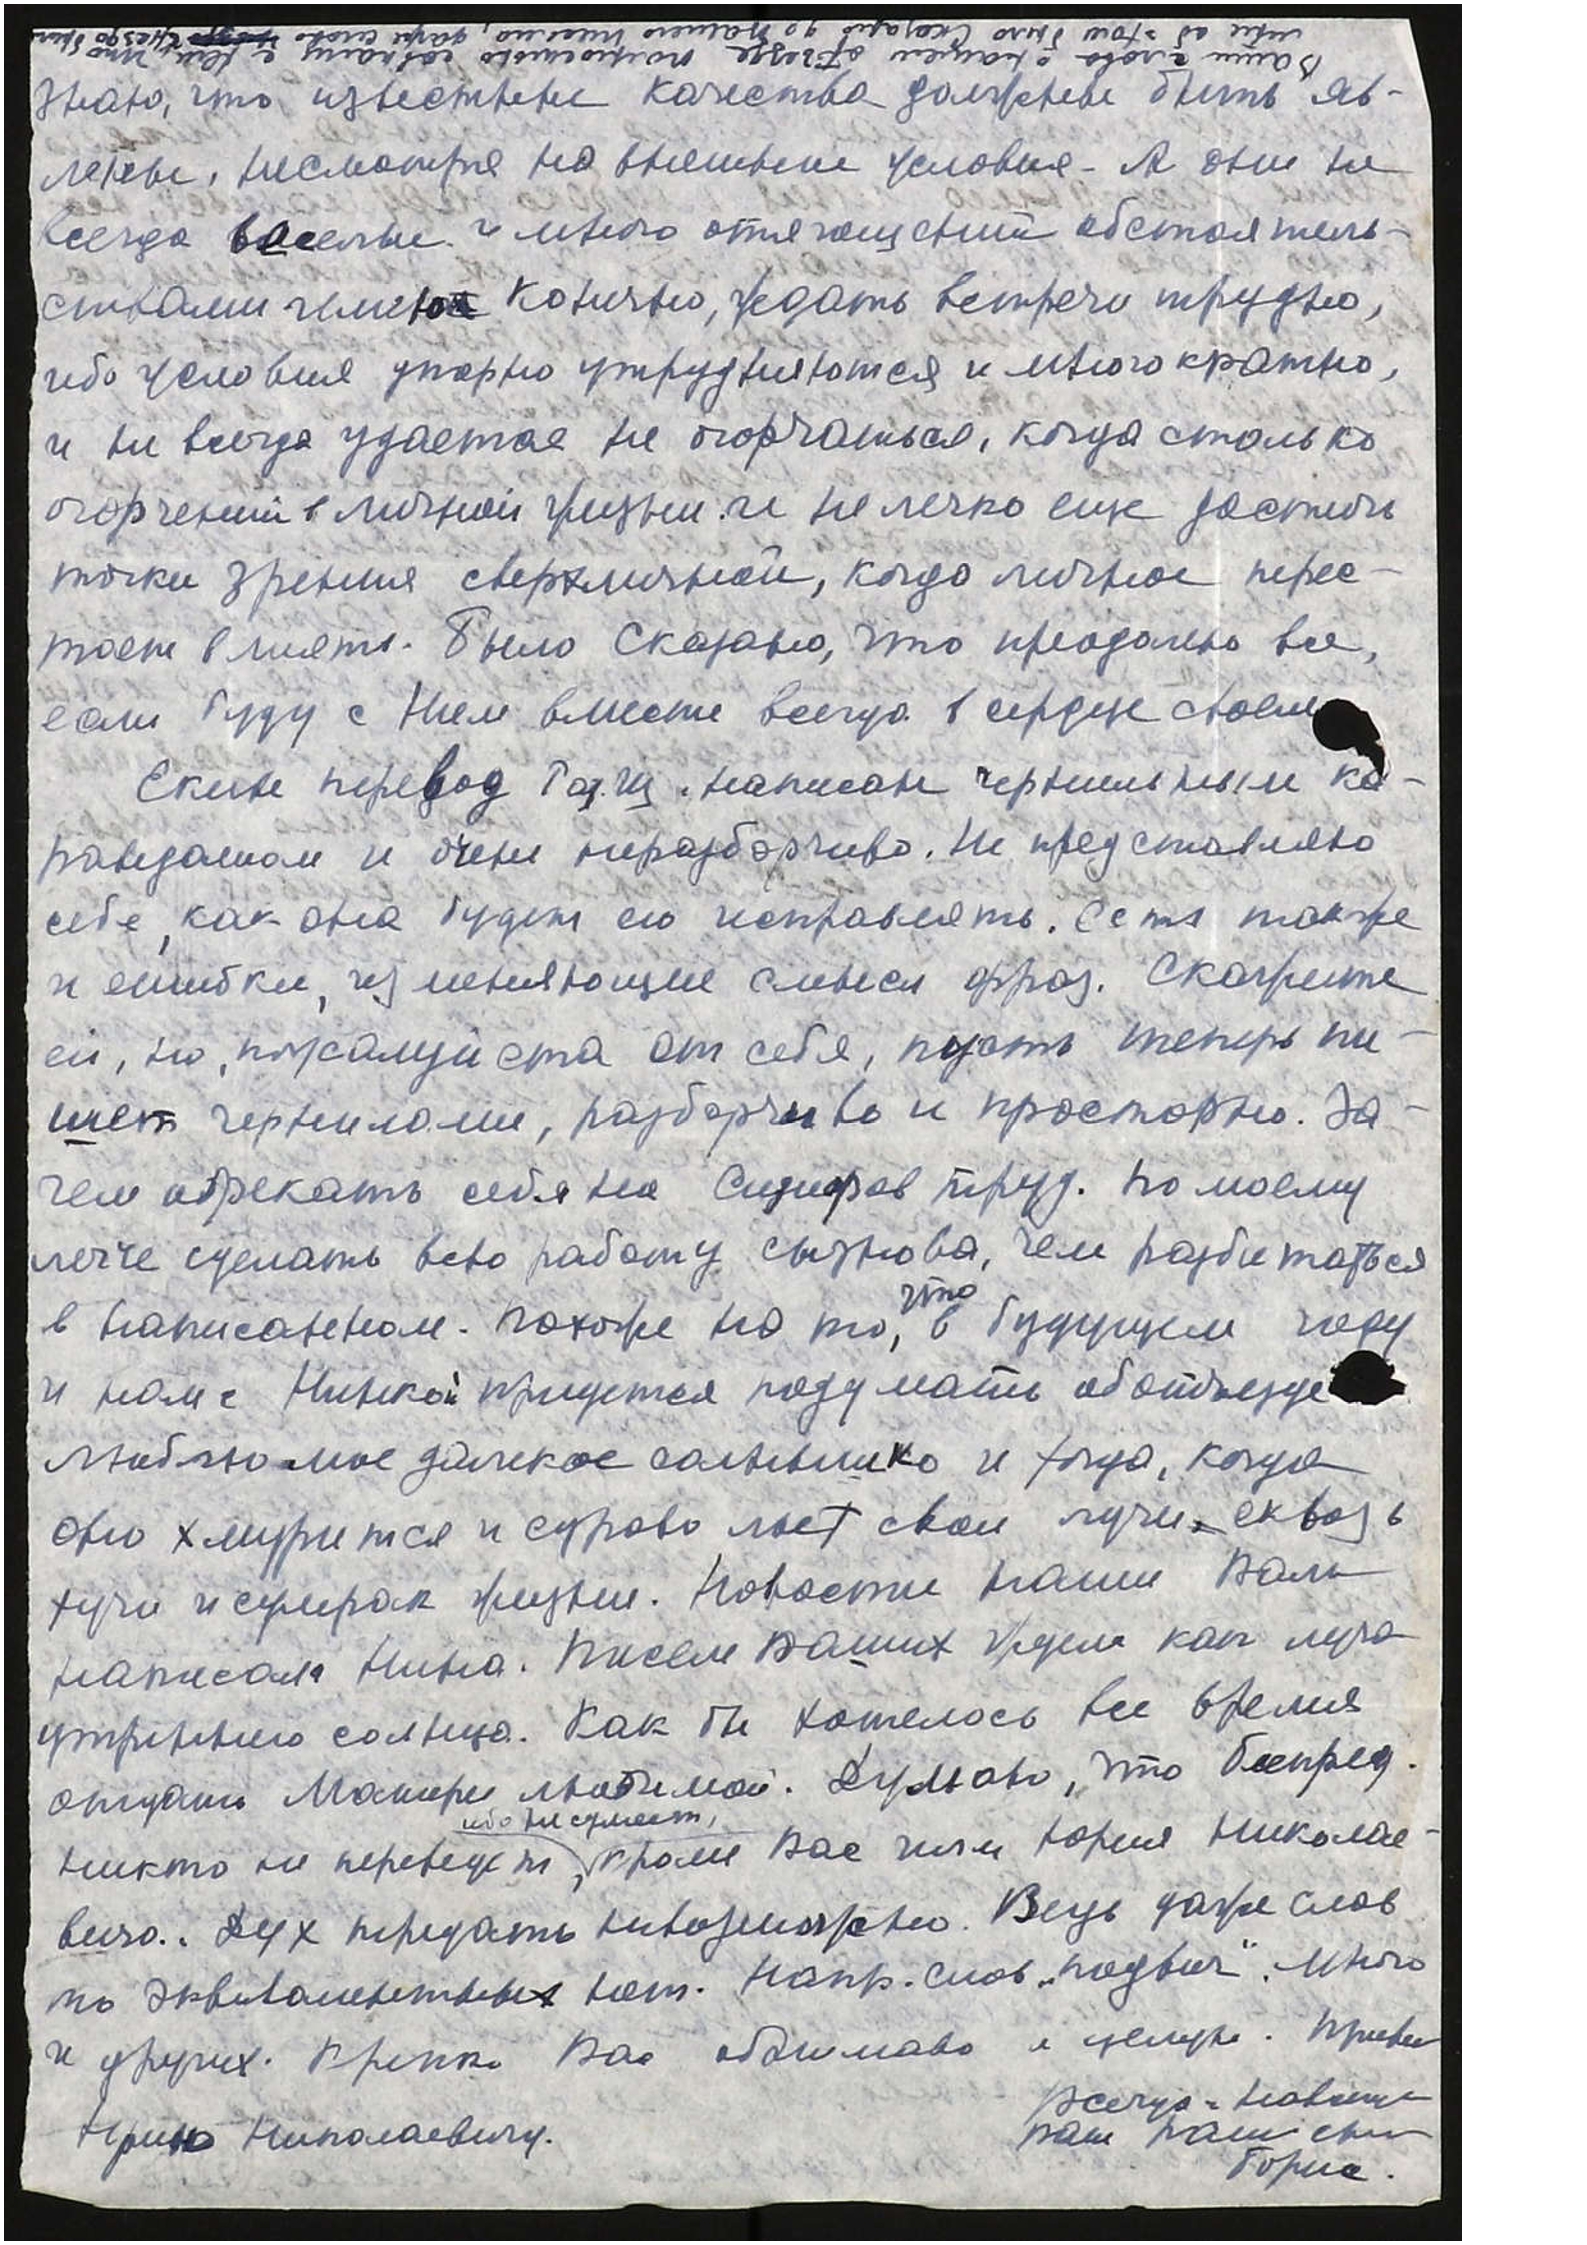 знаю, что известные качества должны быть яв-
лены, несмотря на внешние условия - А они не
всегда веселы и много отягощений обстоятель-
ствами
Конечно, ждать встречи трудно,
ибо условия упорно утрудняются и многократно,
и не всегда удается не огорчаться, когда столько
огорчений в личной жизни и не легко еще достичь
точки зрения сверхличной, когда личное перес-
тает влиять. Было Сказано, что преодолею все,
если буду с Ним вместе всегда в сердце своем
Екин перевод написан чернильным ка-
рандашом и очень неразборчиво. Не представляю
себе, как она будет его исправлять. Есть также
и ошибки, изменяющие смысл фраз. Скажите
ей, но, пожалуйста от себя, пусть теперь пи-
шет чернилами, разборчиво и просторно. За-
чем обрекать себя на Сизифов труд. По моему
легче сделать всю работу сызнова, чем разбираться
в написанном. Похоже на то, что в будущем году
и нам с Нинкой придется подумать об отъезде
Люблю мое далекое солнышко и тогда, когда
оно хмурится и сурово льет свои лучи сквозь
тучи и сумрак жизни. Новости наши Вам
написала Нина. Писем Ваших ждем как луча
утреннего солнца. Как бы хотелось все время
отдать Матери любимой. Думаю, что Беспред.
ибо не сумеет,
никто не переведет, кроме Вас или Юрия Николае-
вича.. Дух передать невозможно. Ведь даже слов
то эквивалентных нет. Напр. слов „подвиг“. Много
и других. Крепко Вас обнимаю и целую. Привет
Юрию Николаевичу.
Всегда и навеки
Ваш Ваш сын
Борис.
Ваши слова о нашем отъезде полностью совпали с тем, что было
мне об этом было Сказано до Вашего письма, даже слово гнездо